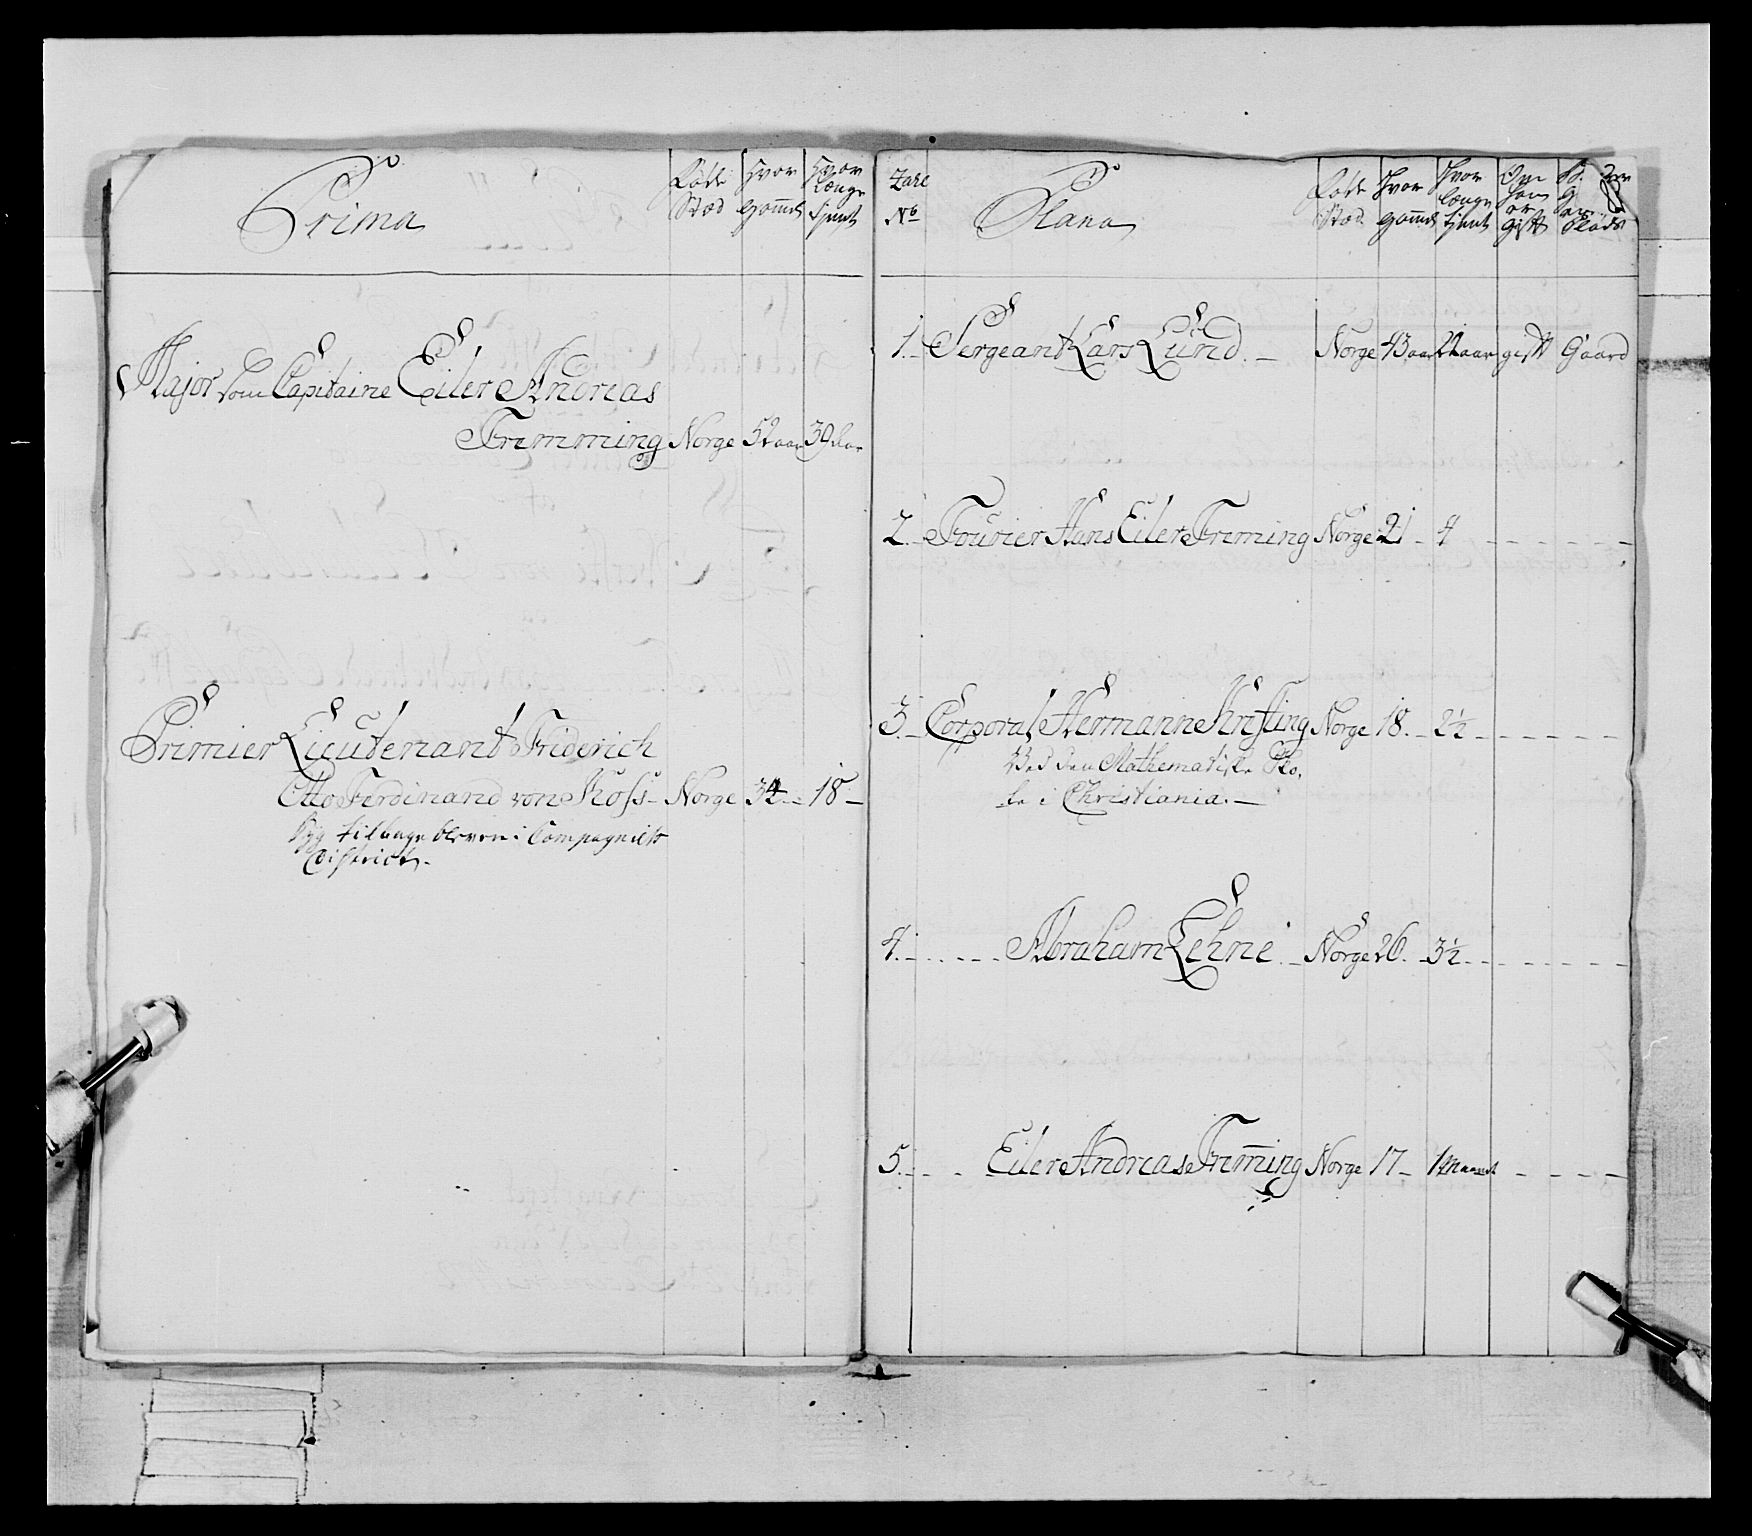 Prima
Føde Stæd
Hvor Gammel
Hvor Længe tjent
Major som Capitaine Eiler Andreas
Fremming Norge 52 aar 39 Aar
Primier Lieutenant Friderich
Otto Ferdinand von Koss - Norge 34 - 18 -
Syg tilbage bleven i Compagniets
District.
Zale No
Plana
Føde Stæd
Hvor Gammel
Hvor længe tjent
Om han er Gift
1. Sergeant Lars Lund. - Norge 43 aar 21 aar gift Gaard
2. Fourier Hans Eiler Freming Norge 21 - 4 - - - - - -
3. Corporal Hermann Norge 18. - 2½ - - - - - -
Ved den Mathematiske Sko,
le i Christiania. -
4. - - - - - Abraham Lehne. - Norge 26. - 3½ - - - - - - -
5. - - - Eiler Andreas Freming Norge 17 - 1 Maaned - - - - -